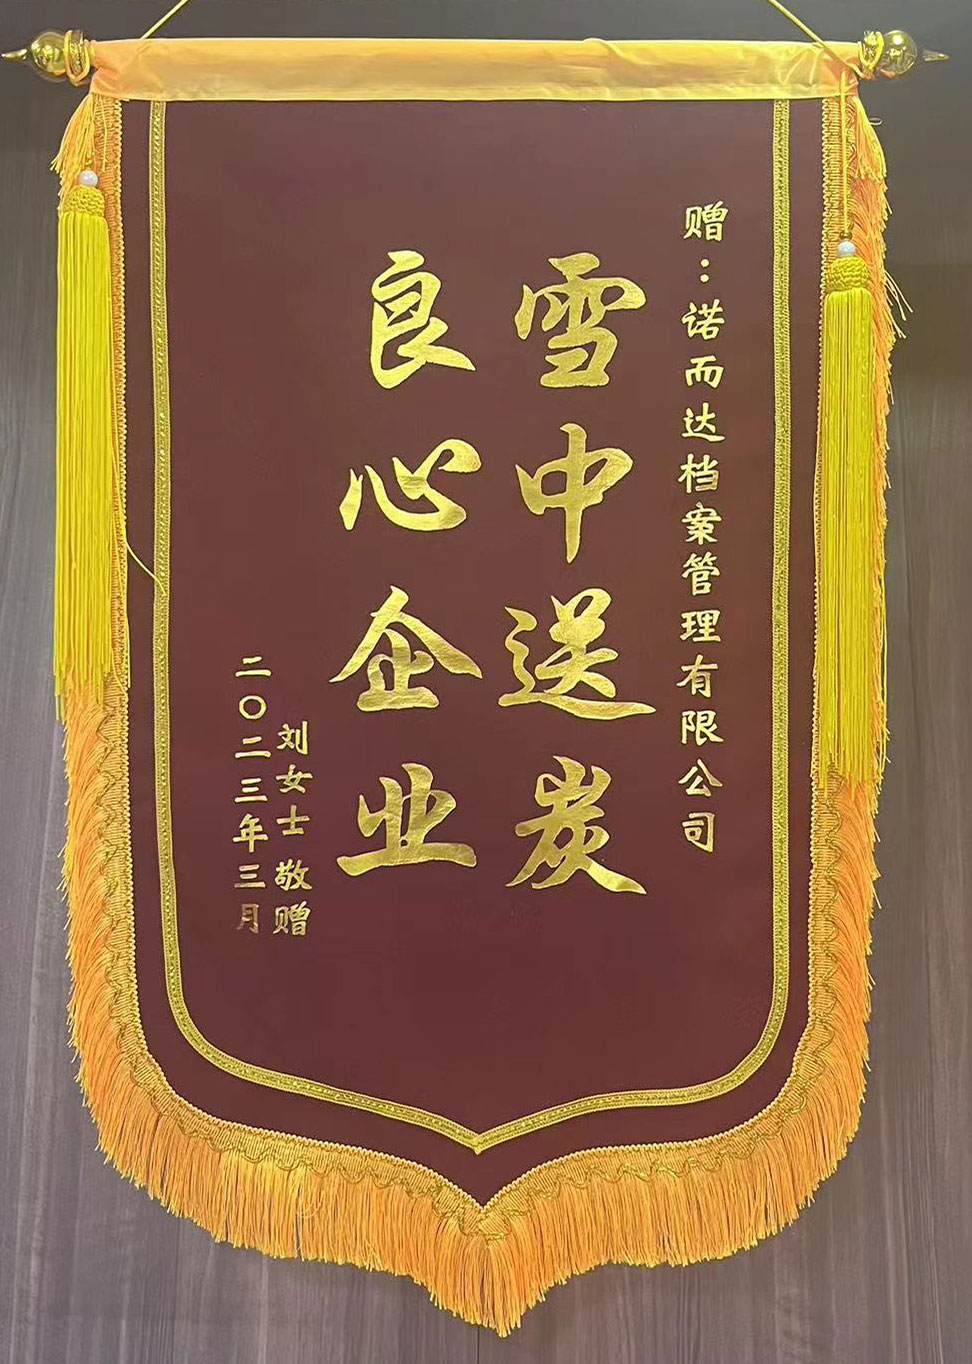 赠：诺而达档案管理有限公司
雪中送炭
良心企业
刘女士 敬赠
二〇二三年三月